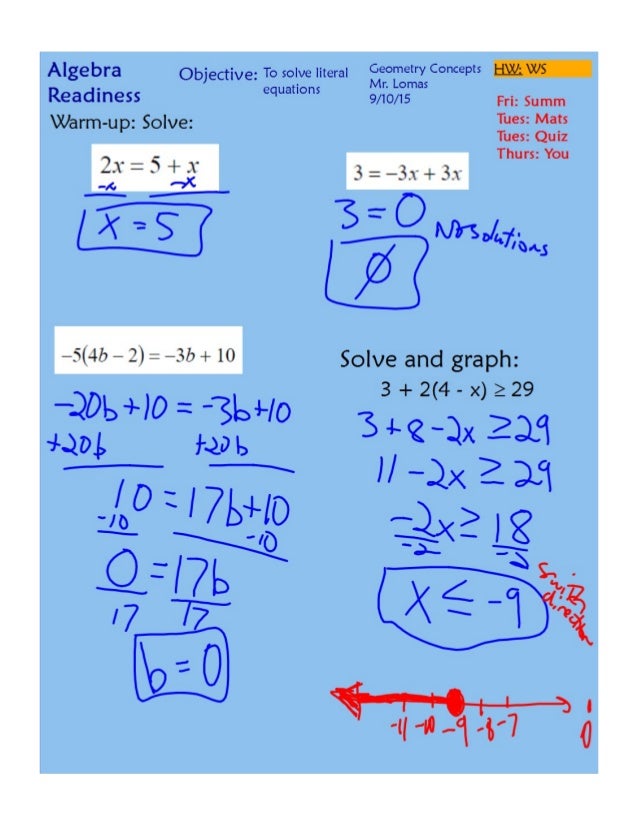 Algebra Readiness
Objective: To solve literal equations
Geometry Concepts
Mr. Lomas
9/10/15
HW: WS
Fri: Summ
Tues: Mats
Tues: Quiz
Thurs: You
Warm-up: Solve:
2x = 5 + x
-x -x
x = 5
3 = -3x + 3x
3 = 0
No solutions
∅
-5(4b - 2) = -3b + 10
-20b + 10 = -3b + 10
+20b +20b
10 = 17b + 10
-10 -10
0 = 17b
17 17
b = 0
Solve and graph:
3 + 2(4 - x) ≥ 29
3 + 8 - 2x ≥ 29
11 - 2x ≥ 29
-2x ≥ 18
-2 -2
x ≤ -9
switch direction
-11 -10 -9 -8 -7 0